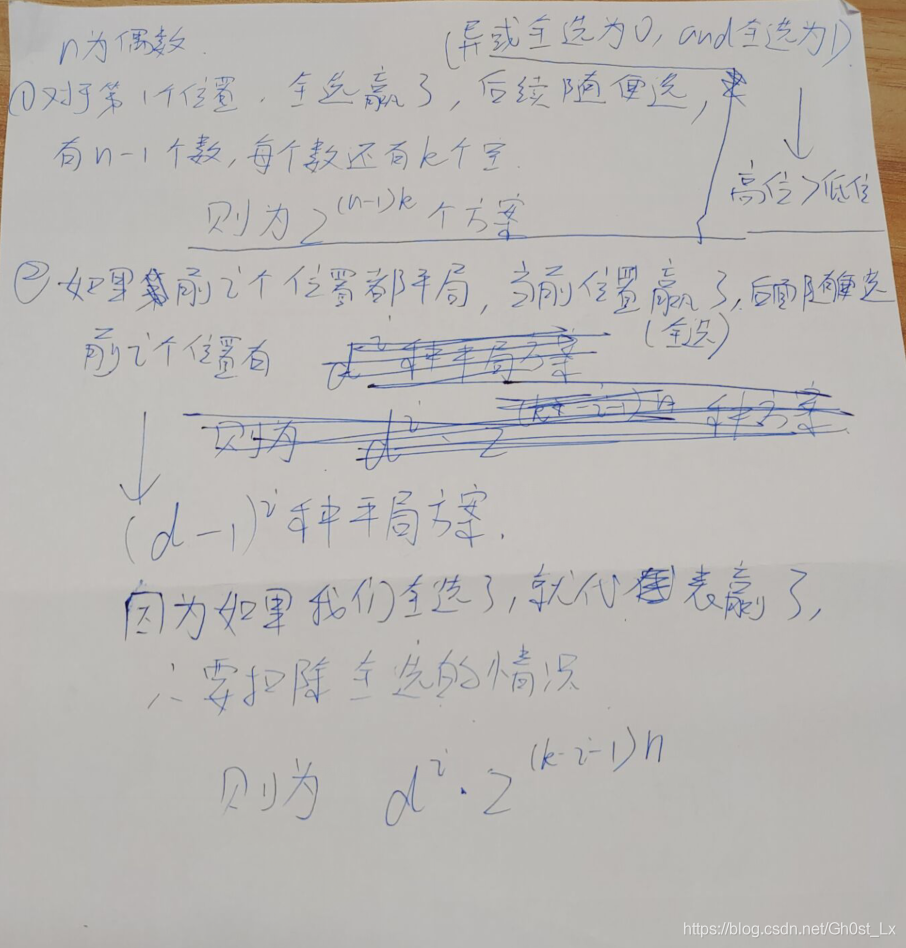 n为偶数.
(异或全选为0, and全选为1)
①对于第1个位置, 全选赢了, 后续随便选,
有n-1个数, 每个数还有k个空.
则为2^(n-1)k 个方案
高位>低位
②如果前i个位置都平局, 当前位置赢了, 后面随便选
(全选)
前i个位置有 d^i 种平局方案
则为 d^i · 2^(k-i-1)n 种方案
(d-1)^i 种平局方案.
因为如果我们全选了, 就代表赢了,
∴要扣除全选的情况
则为 d^i · 2^(k-i-1)n
https://blog.csdn.net/Gh0st_Lx